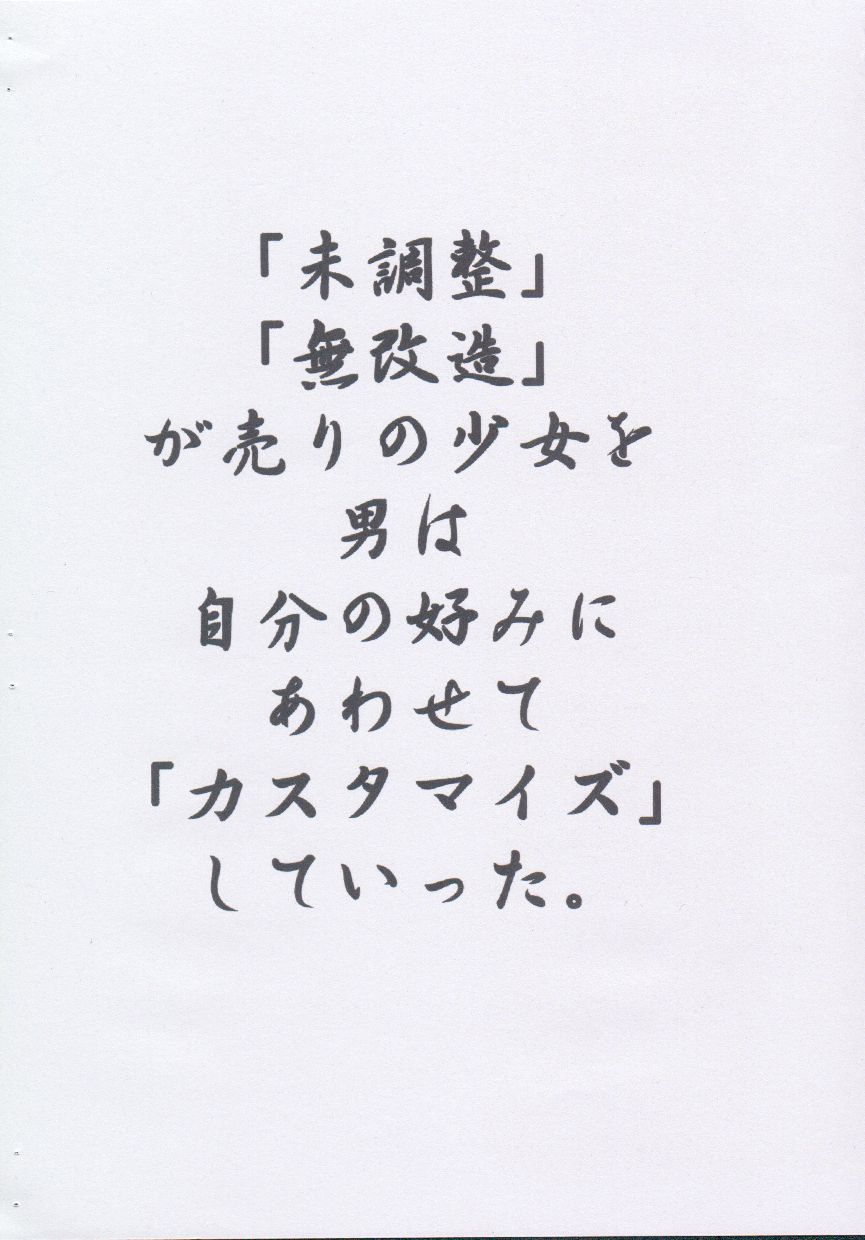 「未調整」
「無改造」
が売りの少女を
男は
自分の好みに
あわせて
「カスタマイズ」
していった。